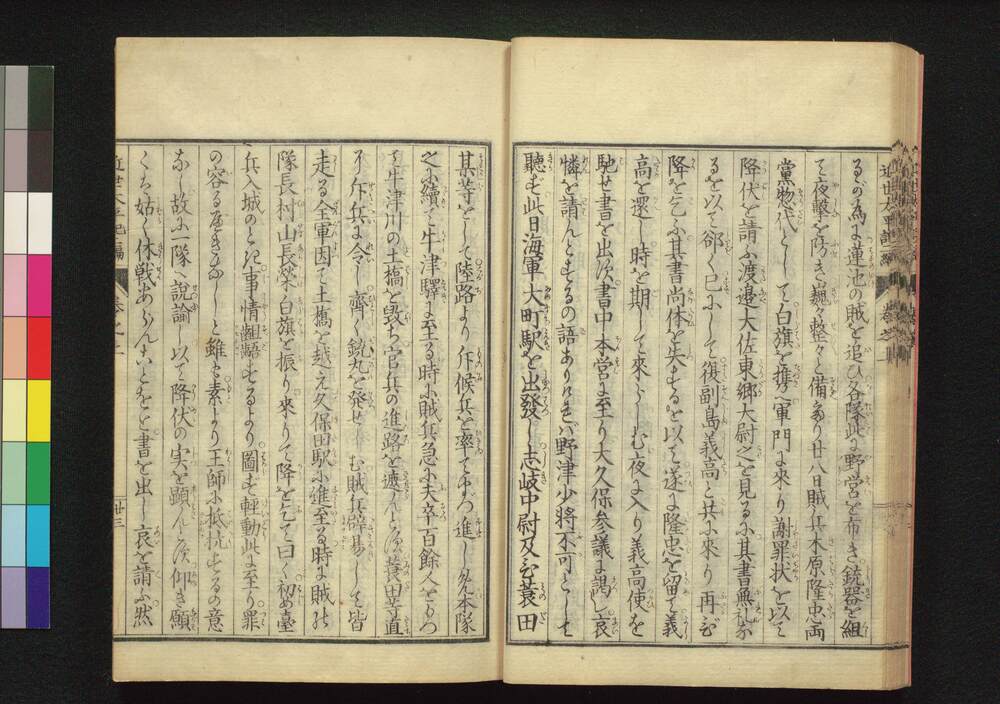 るが為に蓮池の賊を追ひ各隊此に野営を布き銃器を組
て夜撃を防ぎ巍々整々と備あり廿八日賊兵木原隆忠両
黨惣代として白旗を携へ軍門に来り謝罪状を以て
降伏を請ふ渡邉大佐東郷大尉之を見るに其書無礼な
るを以て郤く已にして復副島義高と共に来り再び
降を乞ふ其書尚体を失するを以て遂に隆忠を留て義
高を還し時を期して来らしむ夜に入り義高使を
馳せ書を出す書中本営に至り大久保参議に謁し哀
憐を請んとするの語ありけれバ野津少将不可として
聴ず此日海軍大町駅を出發し志岐中尉及び蓑田
某等をして陸路より斥候兵を率て先づ進しめ本隊
之に續て牛津驛に至る時に賊兵急に夫卒百餘人をもつ
て牛津川の土橋を毀ち官兵の進路を遮んとす蓑田直
に斥兵に令し齊く銃丸を発せしむ賊兵辟易して皆
走る全軍因て土橋を越え久保田駅に進至る時に賊の
隊長村山長榮白旗を振り來りて降を乞て曰く初め臺
兵入城のとき事情齟齬するより圖ず輕動此に至り罪
の容る可きなしと雖も素より王師に抵抗するの意
なし故に一隊へ説諭し以て降伏の実を顕んとす仰ぎ願
くハ姑く休戦あらんことをと書を出し哀を請ふ然
近世太平記
巻之二
廿三